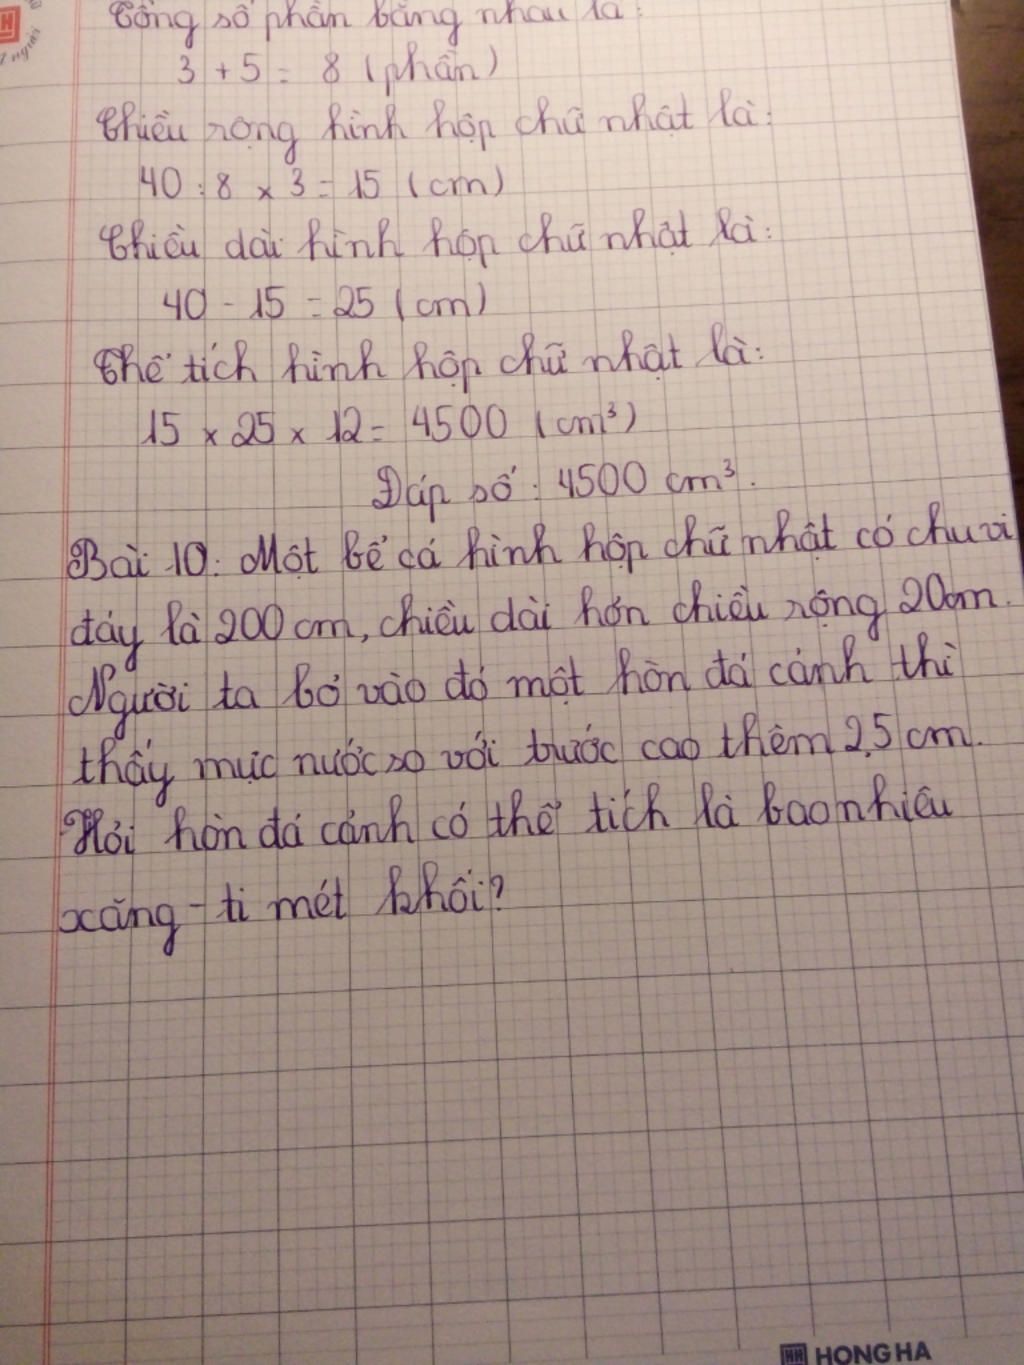 Tổng số phần bằng nhau là:
3 + 5 = 8 (phần)
Chiều rộng hình hộp chữ nhật là:
40 : 8 x 3 = 15 (cm)
Chiều dài hình hộp chữ nhật là:
40 - 15 = 25 (cm)
Thể tích hình hộp chữ nhật là:
15 x 25 x 12 = 4500 (cm³)
Đáp số : 4500 cm³.
Bài 10: Một bể cá hình hộp chữ nhật có chu vi
đáy là 200 cm, chiều dài hơn chiều rộng 20cm.
Người ta bỏ vào đó một hòn đá cảnh thì
thấy mực nước so với trước cao thêm 2,5 cm.
Hỏi hòn đá cảnh có thể tích là bao nhiêu
xăng-ti mét khối?
HH HONG HA